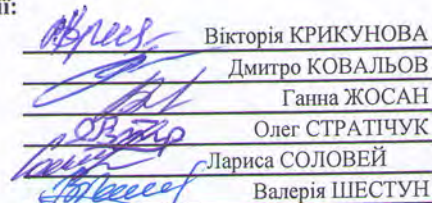 ії:
Вікторія КРИКУНОВА
Дмитро КОВАЛЬОВ
Ганна ЖОСАН
Олег СТРАТІЧУК
Лариса СОЛОВЕЙ
Валерія ШЕСТУН